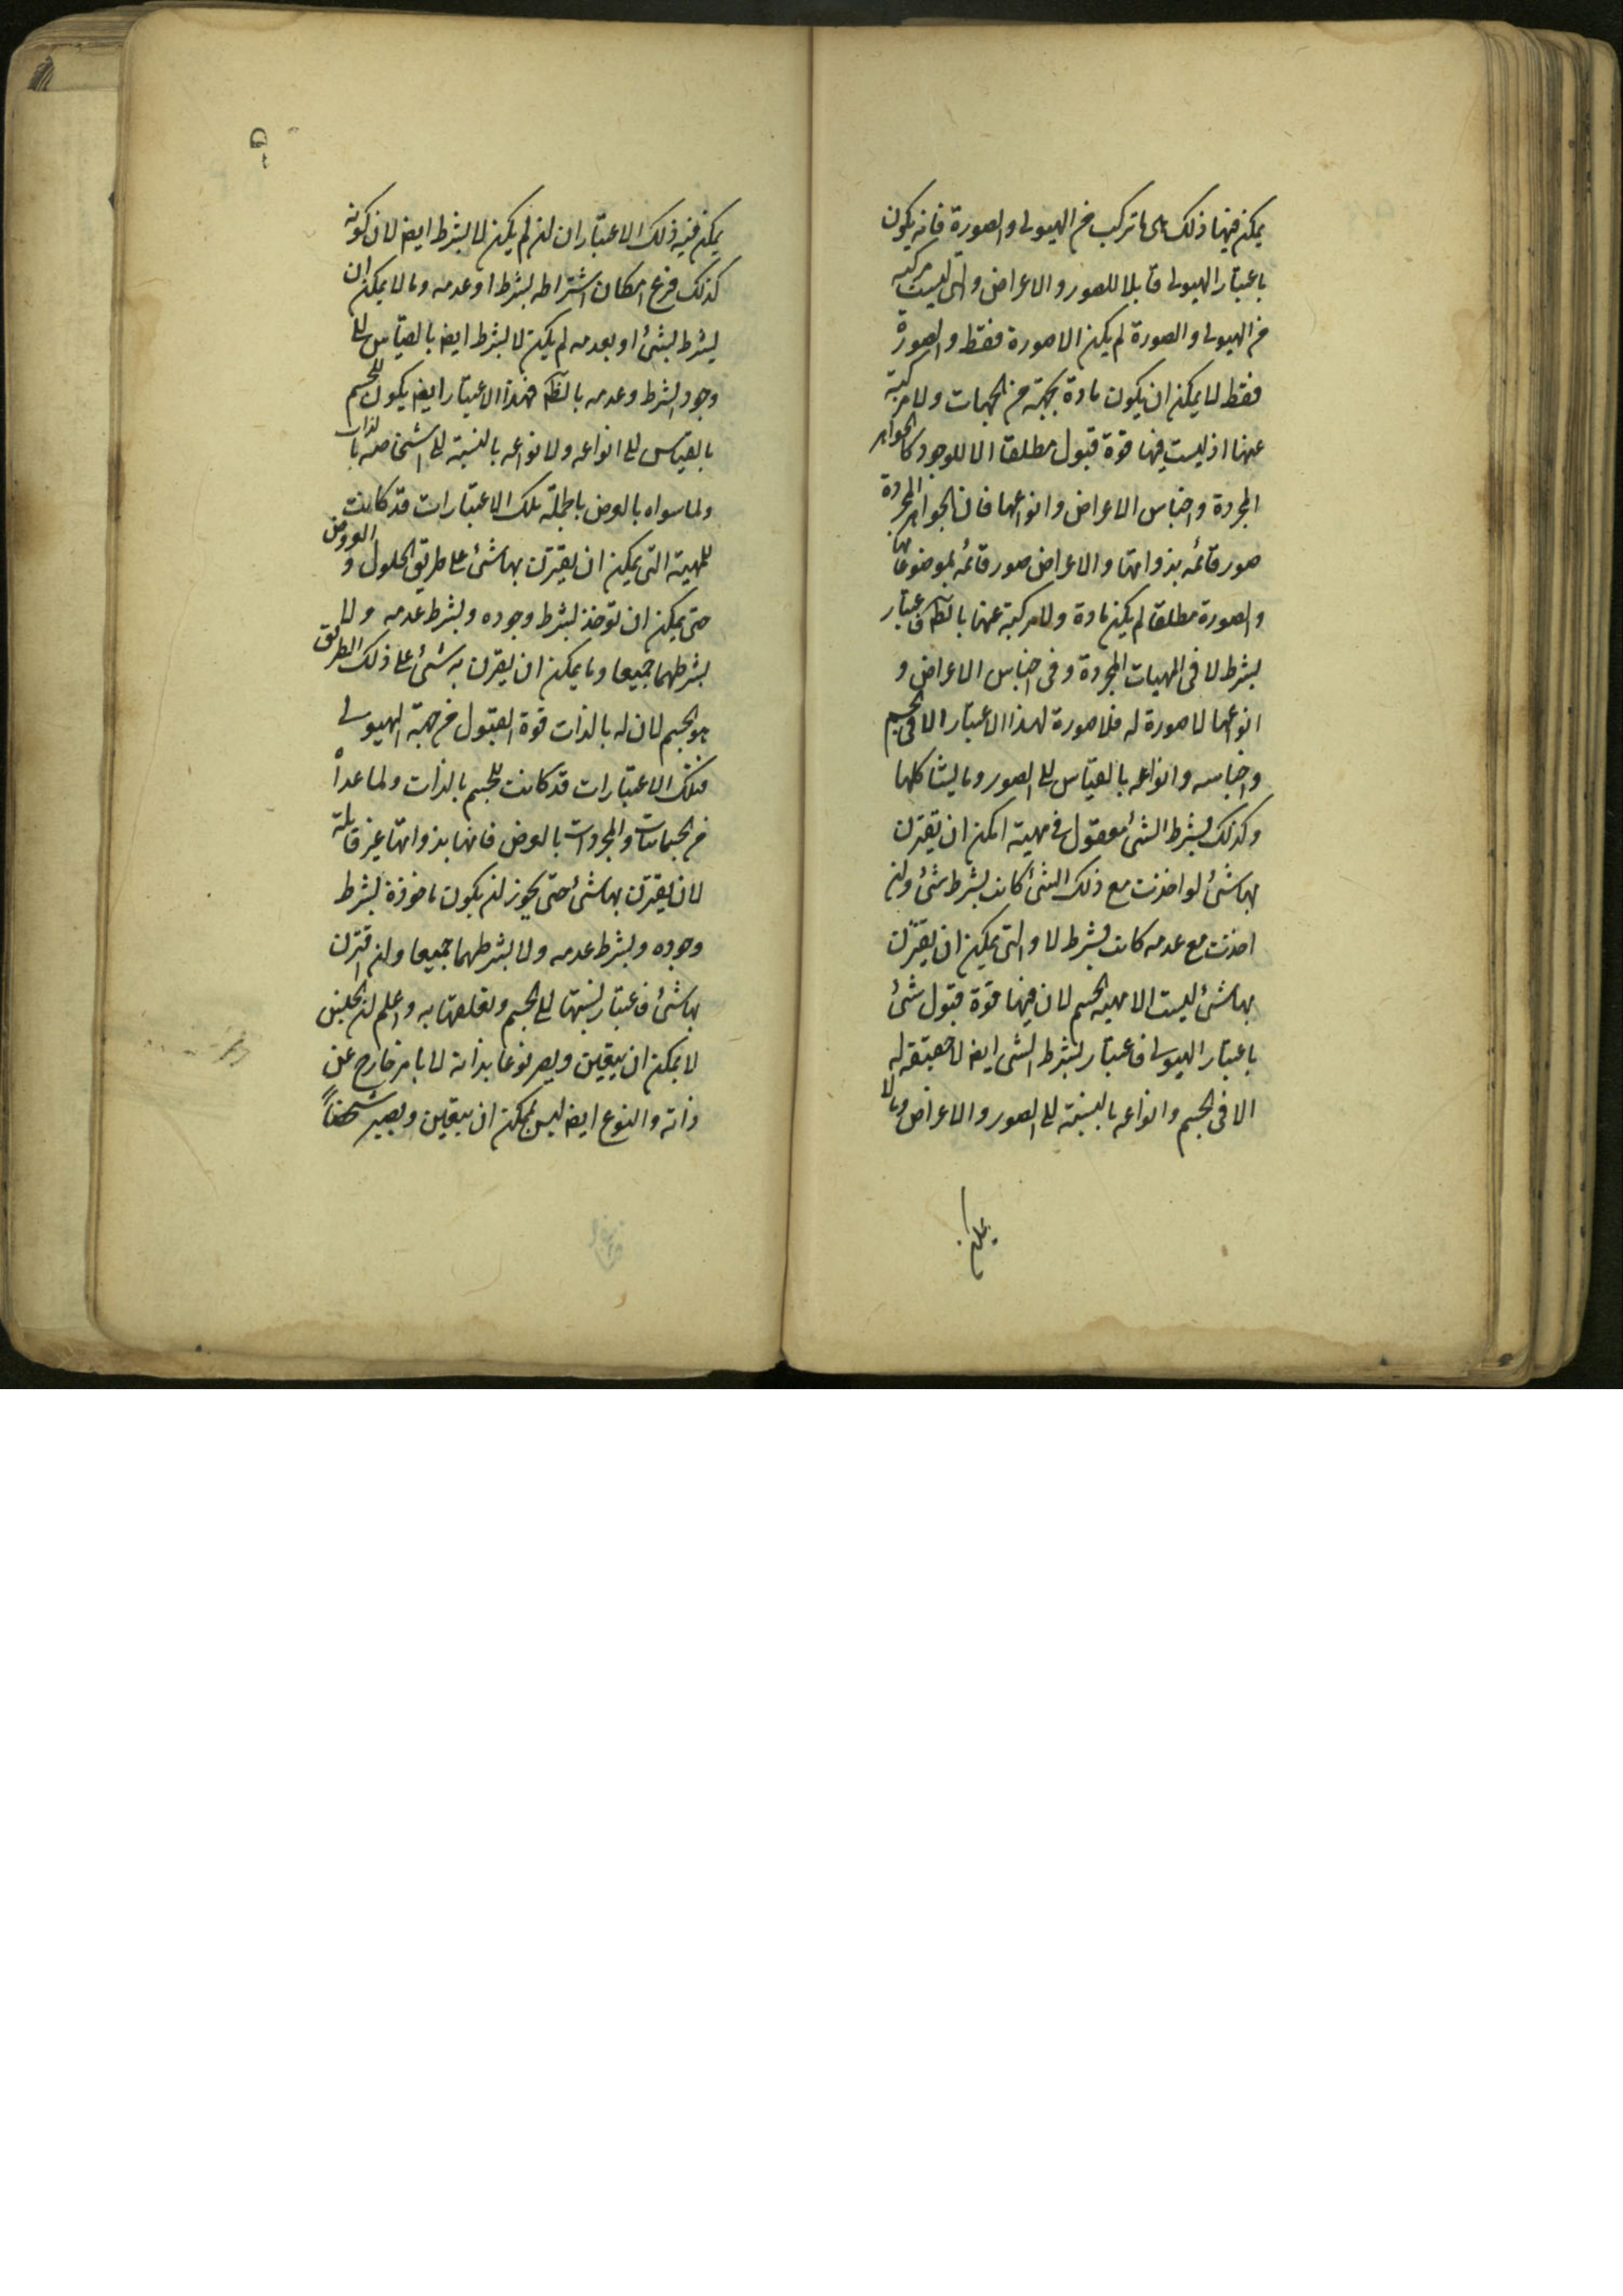 يمكن فيها ذلك هى ما تركب من الهيولى والصورة فانه يكون
باعتبار الهيولى قابلا للصور والاعراض والتى ليست مركبة
من الهيولى والصورة لم يكن الا صورة فقط والصورة
فقط لا يمكن ان يكون مادة بجهة من الجهات ولا مركبة
عنها اذ ليست فيها قوة قبول مطلقا الا للوجود كالجواهر
المجردة واجناس الاعراض وانواعها فان الجواهر المجردة
صور قائمه بذواتها والاعراض صور قائمه بموضوعاتها
والصورة مطلقا لم يكن مادة ولا مركبة عنها بالكلية فاعتبار
بشرط لا فى المهيات المجردة وفى اجناس الاعراض و
انواعها لا صورة له فلا صورة لهذا الاعتبار الا فى الجسم
واجناسه وانواعه بالقياس الى الصور وما يشاكلها
وكذلك بشرط الشئ معقول فى مهية امكن ان تقترن
بها شئ لو اخذت مع ذلك الشئ كانت بشرط شئ وان
اخذت مع عدمه كانت بشرط لا والتى يمكن ان يقترن
بها شئ ليست الا مهية الجسم لان فيها قوة قبول شئ
باعتبار الهيولى فاعتبار بشرط الشى ايض لا حقيقة له
الا فى الجسم وانواعه بالنسبة الى الصور والاعراض وما لا
يمكن
يمكن فيه ذلك الاعتباران لم يكن لا بشرط ايض لان كونه
كذلك فرع امكان اشتراطه بشرط او عدمه وما لا يمكن ان
يشرط بشئ او بعدمه لم يكن لا بشرط ايض بالقياس الى
وجود الشرط وعدمه فهذا الاعتبار ايض يكون للجسم
بالقياس الى انواعه ولانواعه بالنسبة الى اشخاصه بالذات
ولما سواه بالعرض بالجملة تلك الاعتبارات قد كانت
للمهية التى يمكن ان يقترن بها شئ على طريق الحلول والعروض
حتى يمكن ان تؤخذ بشرط وجوده وبشرط عدمه ولا
بشرطهما جميعا وما يمكن ان يقترن به شئ على ذلك الطريق
هو الجسم لان له بالذات قوة القبول من جهة الهيولى
فتلك الاعتبارات قد كانت للجسم بالذات ولما عداه
من الجسمانيات والمجردات بالعرض فانها بذواتها غير قابلة
لان يقترن بها شئ حتى يجوز ان يكون ماخوذة بشرط
وجوده وبشرط عدمه ولا بشرطهما جميعا وان اقترن
بها شئ فاعتبار نسبتها الى الجسم وتعلقها به واعلم ان الجنس
لا يمكن ان يتعين ويصير نوعا بذاته لا بامر خارج عن
ذاته والنوع ايض ليس يمكن ان يتعين ويصير شخصاً